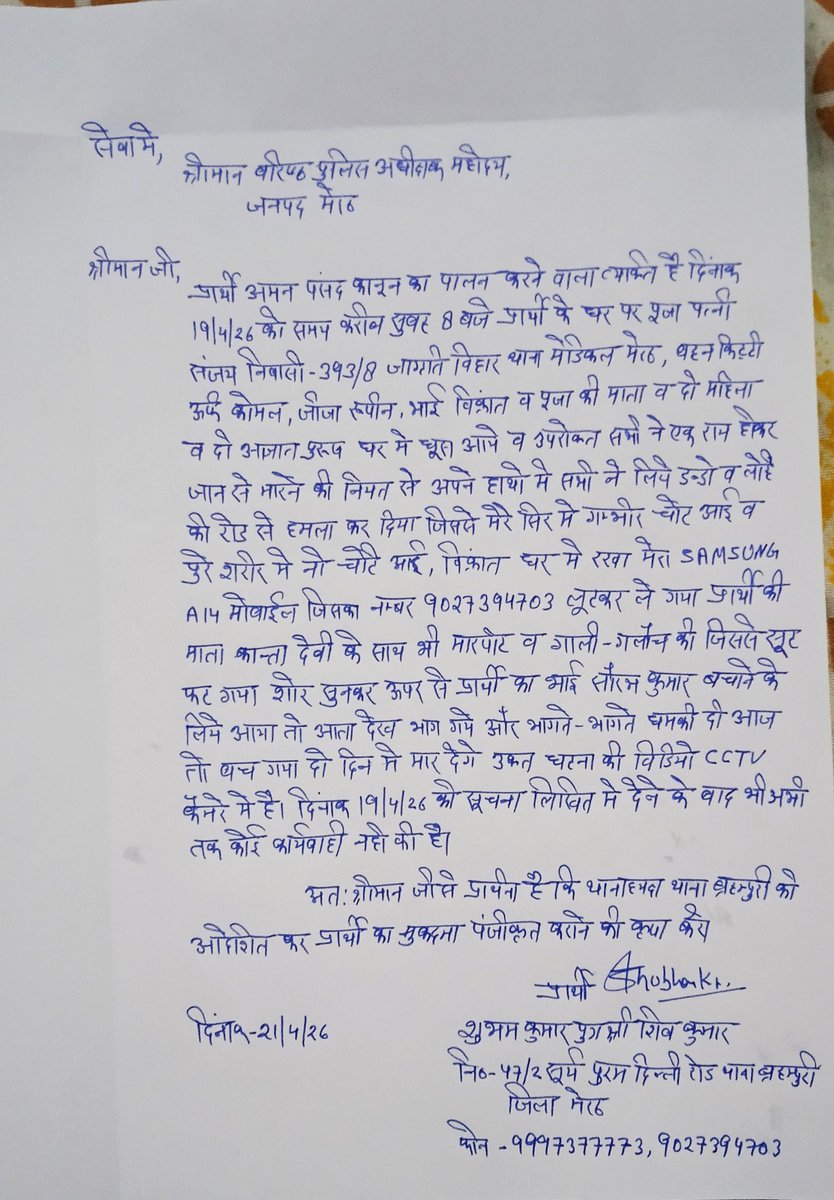 सेवा मे,
श्रीमान वरिष्ठ पुलिस अधीक्षक महोदय,
जनपद मेरठ
श्रीमान जी,
प्रार्थी अमन पसंद कानून का पालन करने वाला व्यक्ति है दिनांक
19/4/26 को समय करीब सुबह 8 बजे प्रार्थी के घर पर पूजा पत्नी
संजय निवासी-393/8 जाग्रति विहार थाना मेडिकल मेरठ, बहन किट्टी
उर्फ कोमल, जीजा रूपीन, भाई विक्रांत व पूजा की माता व दो महिला
व दो अज्ञात पुरूष घर मे घूस आये व उपरोक्त सभी ने एक राय होकर
जान से मारने की नियत से अपने हाथो मे सभी ने लिये डन्डो व लोहे
की रोड से हमला कर दिया जिससे मेरे सिर मे गम्भीर चोट आई व
पुरे शरीर मे भी चोटे आई, विक्रांत घर मे रखा मेरा SAMSUNG
A14 मोबाईल जिसका नम्बर 9027394703 लूटकर ले गया प्रार्थी की
माता कान्ता देवी के साथ भी मारपीट व गाली-गलौच की जिससे सूट
फट गया शोर सुनकर ऊपर से प्रार्थी का भाई सौरभ कुमार बचाने के
लिये आया तो आता देख भाग गये और भागते-भागते धमकी दी आज
तो बच गया दो दिन मे मार देंगे उक्त घटना की विडियो CCTV
कैमरे मे है। दिनांक 19/4/26 को सूचना लिखित मे देने के बाद भी अभी
तक कोई कार्यवाही नही की है।
अत: श्रीमान जी से प्रार्थना है कि थानाध्यक्ष थाना ब्रहमपुरी को
आदेशित कर प्रार्थी का मुकदमा पंजीकृत कराने की कृपा करे।
प्रार्थी Shubham Kr.
दिनांक-21/4/26
शुभम कुमार पुत्र श्री शिव कुमार
नि०-47/2 सूर्य पुरम दिल्ली रोड थाना ब्रहमपुरी
जिला मेरठ
फोन - 9997377773, 9027394703